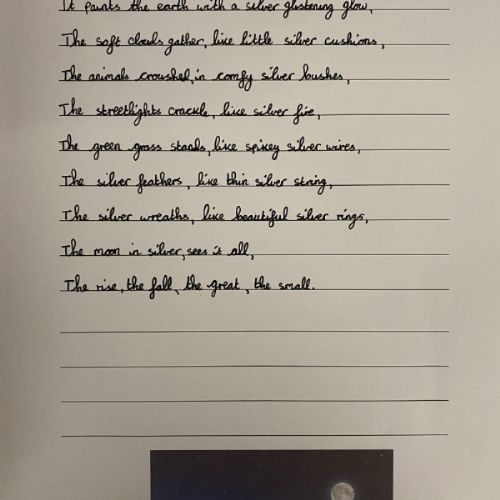 It paints the earth with a silver glistening glow,
The soft clouds gather, like little silver cushions,
The animals crouched, in comfy silver bushes,
The streetlights crackle, like silver fire,
The green grass stands, like spikey silver wires,
The silver feathers, like thin silver string,
The silver wreaths, like beautiful silver rings,
The moon in silver, sees it all,
The rise, the fall, the great, the small.